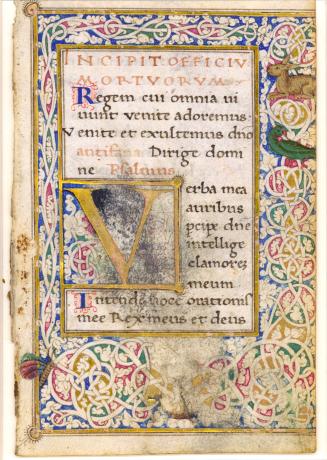 INCIPIT OFFICIU
MORTUORUM
Regem cui omnia vi
uunt venite adoremus
Venite et exultemus dño
antifana Dirige domi
ne Psalmus
Verba mea
auribus
pcipe dne
intellige
clamorez
meum
Intende voce orationis
mee Rex meus et deus